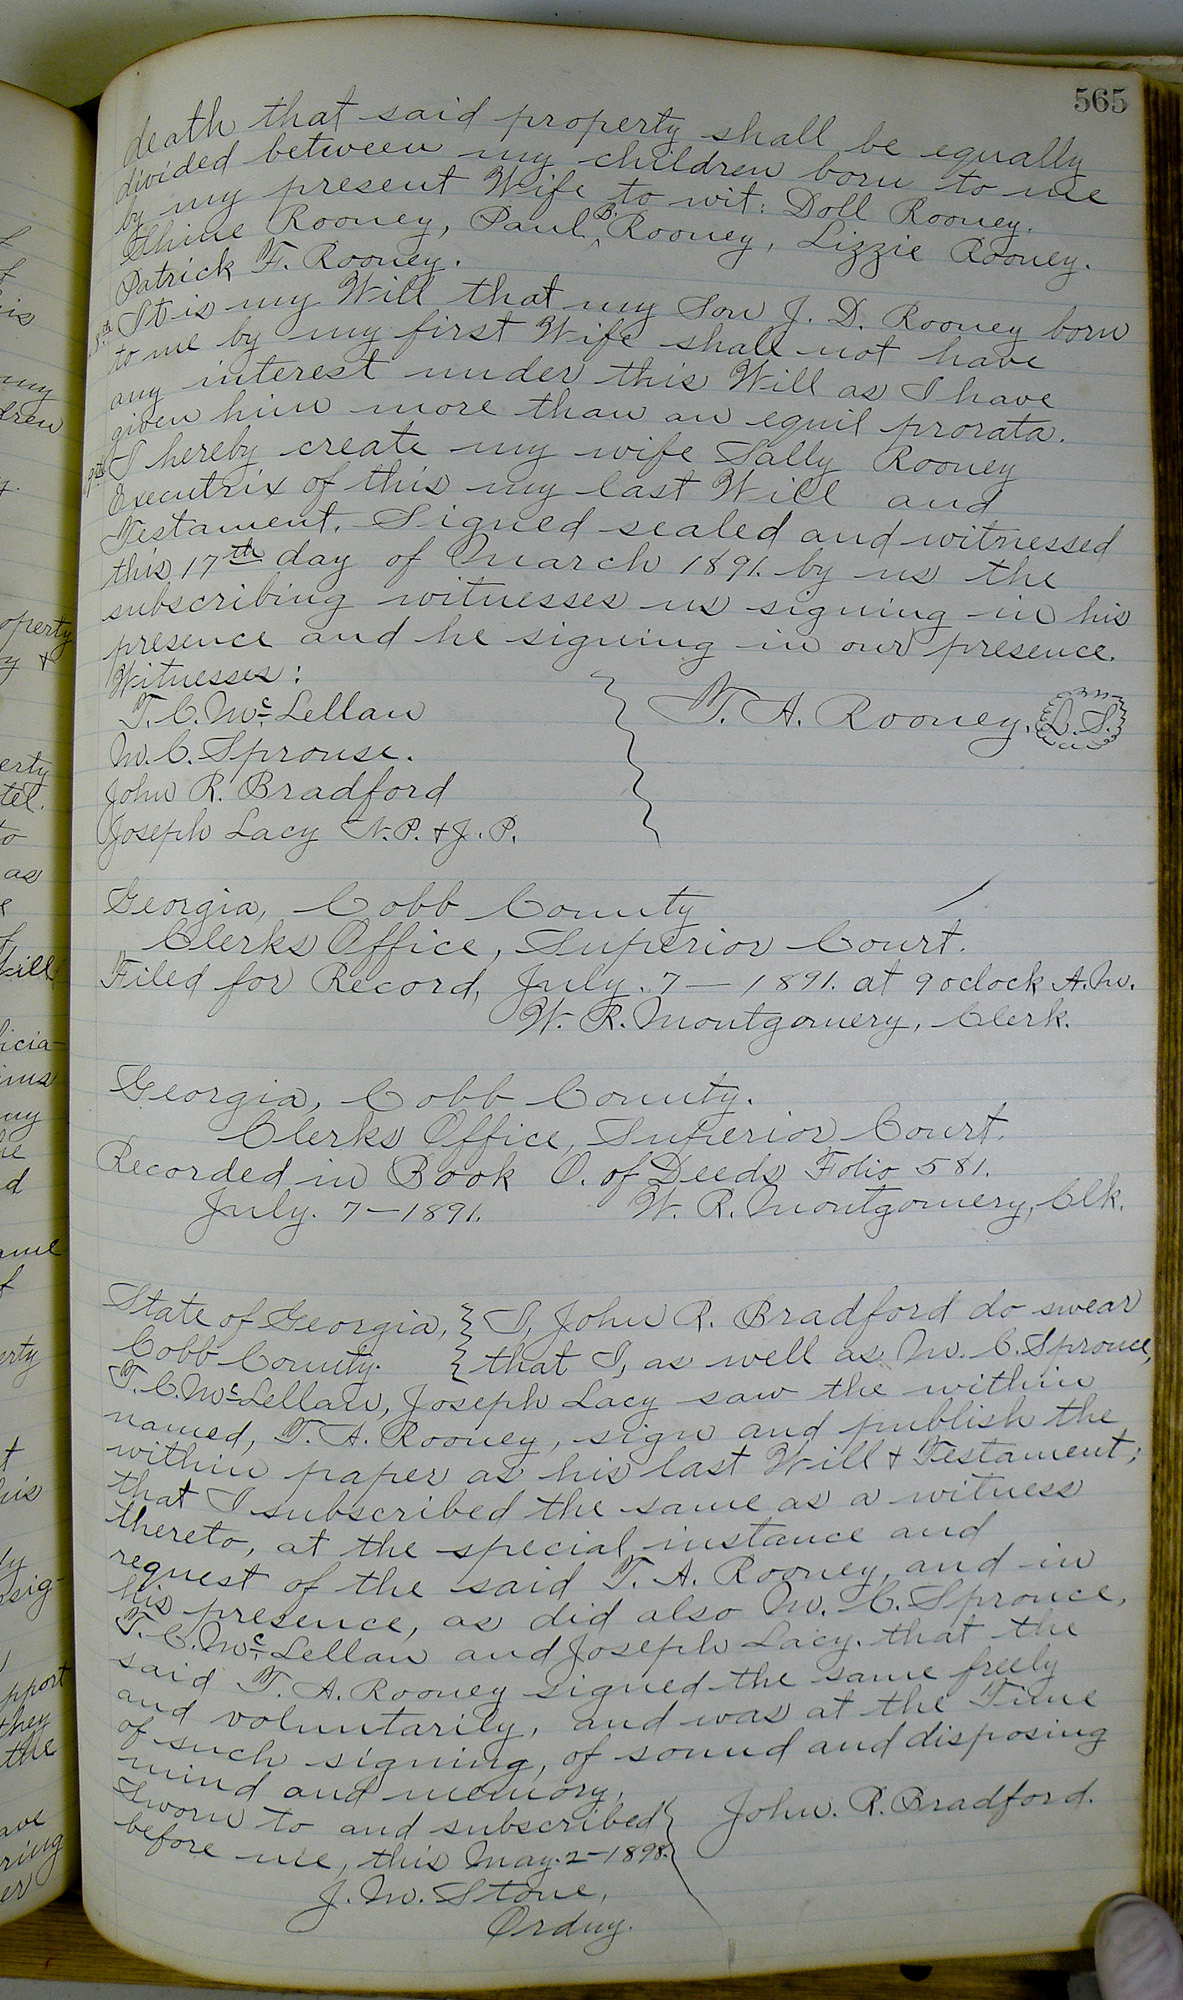 565
death that said property shall be equally
divided between my children born to me
by my present Wife to wit: Doll Rooney.
Rooney, Paul B. Rooney, Lizzie Rooney.
Patrick F. Rooney.
8th It is my Will that my Son J. D. Rooney born
to me by my first Wife shall not have
any interest under this Will as I have
given him more than an equil prorata.
9th I hereby create my wife Sally Rooney
Executrix of this my last Will and
Testament. Signed sealed and witnessed
this 17th day of March 1891. by us the
subscribing witnesses us signing in his
presence and he signing in our presence.
Witnesses:
T. C. McLellan
M. C. Sprouse.
John R. Bradford
Joseph Lacy N.P. & J.P.
T. A. Rooney. L.S.
Georgia, Cobb County
Clerks Office, Superior Court.
Filed for Record, July. 7 — 1891. at 9 oclock A.M.
W. R. Montgomery, Clerk.
Georgia, Cobb County.
Clerks Office, Superior Court.
Recorded in Book O. of Deeds Folio 581.
July. 7 — 1891. W. R. Montgomery, Clk.
State of Georgia, } I, John R. Bradford do swear
Cobb County. } that I, as well as M. C. Sprouce,
T. C. McLellan, Joseph Lacy saw the within
named, T. A. Rooney, sign and publish the
within paper as his last Will & Testament;
that I subscribed the same as a witness
thereto, at the special instance and
request of the said T. A. Rooney, and in
his presence, as did also M. C. Sprouce,
T. C. McLellan and Joseph Lacy. that the
said T. A. Rooney signed the same freely
and voluntarily, and was at the Time
of such signing, of sound and disposing
mind and memory.
Sworn to and subscribed
before me, this May. 2 - 1898.
John. R. Bradford.
J. M. Stone,
Ordny.